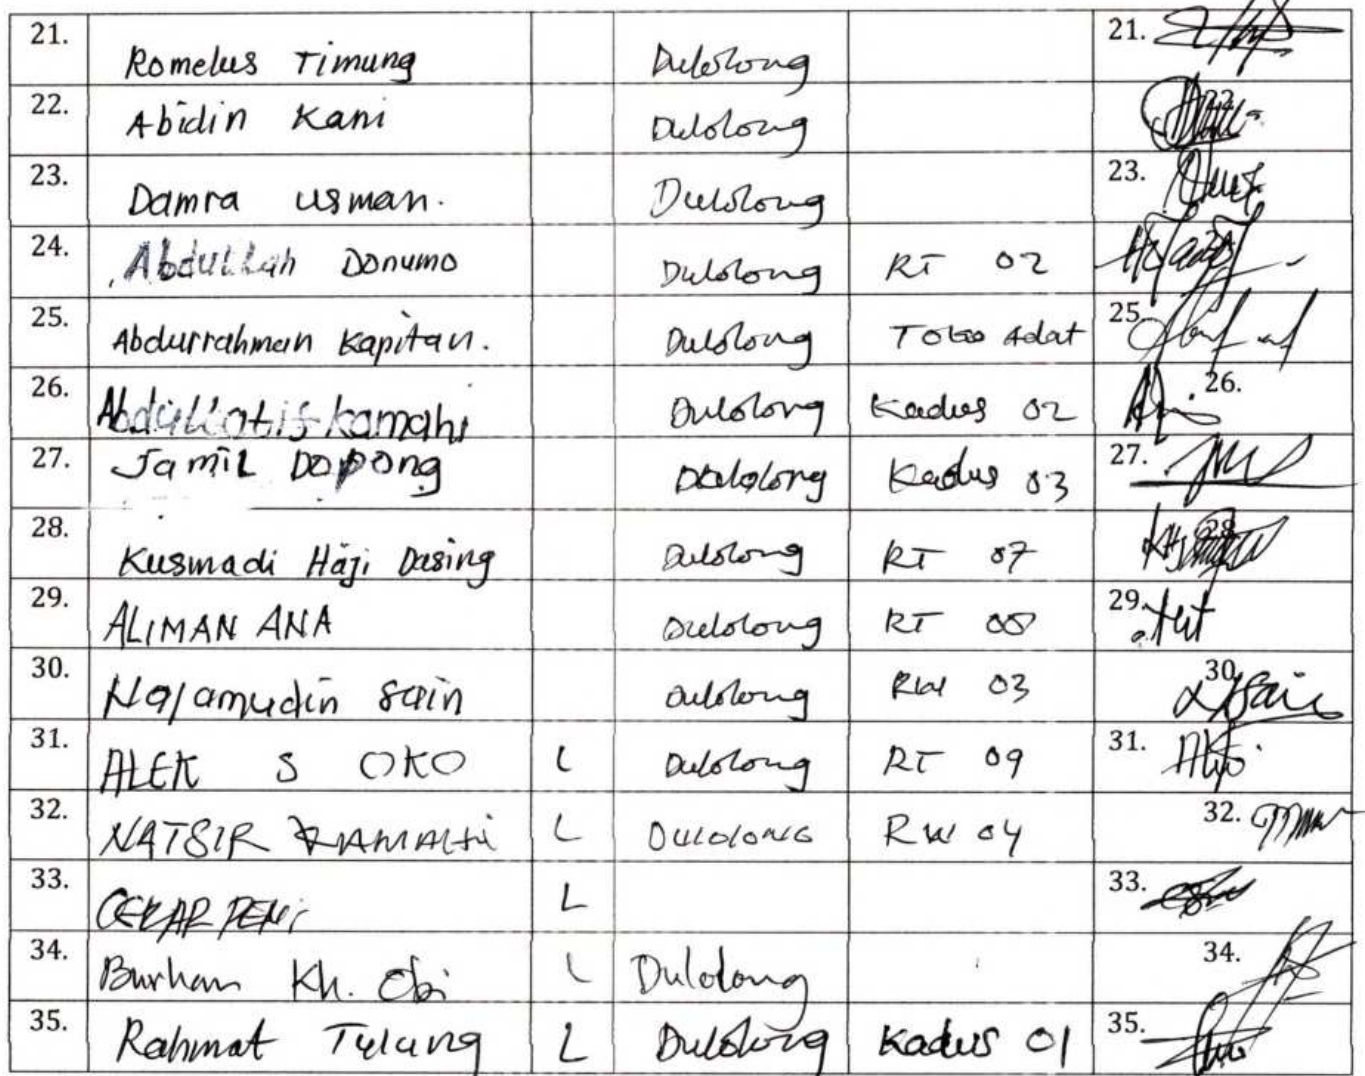 21. Romelus Timung Dulolong 21.
22. Abidin Kani Dulolong 22.
23. Damra Usman. Dulolong 23.
24. Abdullah Donumo Dulolong RT 02 24.
25. Abdurrahman Kapitan. Dulolong Toko Adat 25.
26. Abdullatif kamahi Dulolong Kadus 02 26.
27. Jamil Dopong Dulolong Kadus 03 27.
28. Kusmadi Haji Dasing Dulolong RT 07 28.
29. ALIMAN ANA Dulolong RT 29.
30. Najamudin Sain Dulolong RW 03 30.
31. ALEK S OKO L Dulolong RT 09 31.
32. NATSIR KAMAHI L DULOLONG RW 04 32.
33. L 33.
34. Burhan Kh. Obi L Dulolong 34.
35. Rahmat Tulung L Dulolong Kadus 01 35.